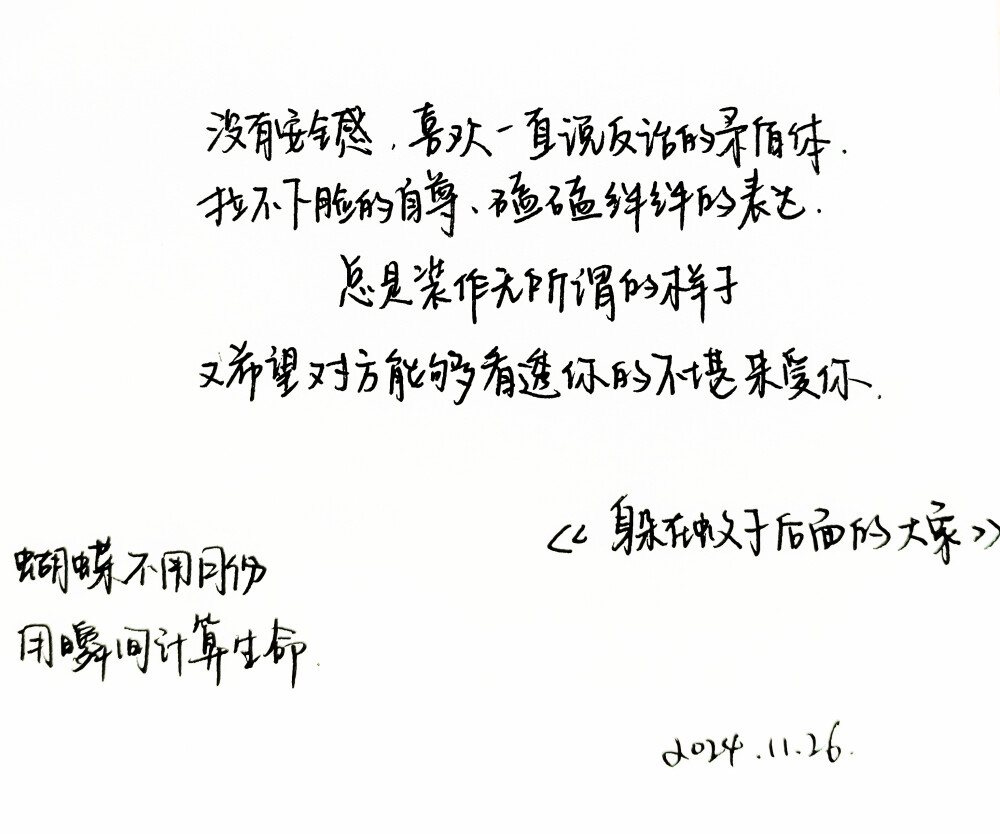 没有安全感,喜欢一直说反话的矛盾体.
拉不下脸的自尊、磕磕绊绊的表达.
总是装作无所谓的样子
又希望对方能够看透你的不堪来爱你.
<<躲在蚊子后面的大象>>
蝴蝶不用月份
用瞬间计算生命.
2024.11.26.